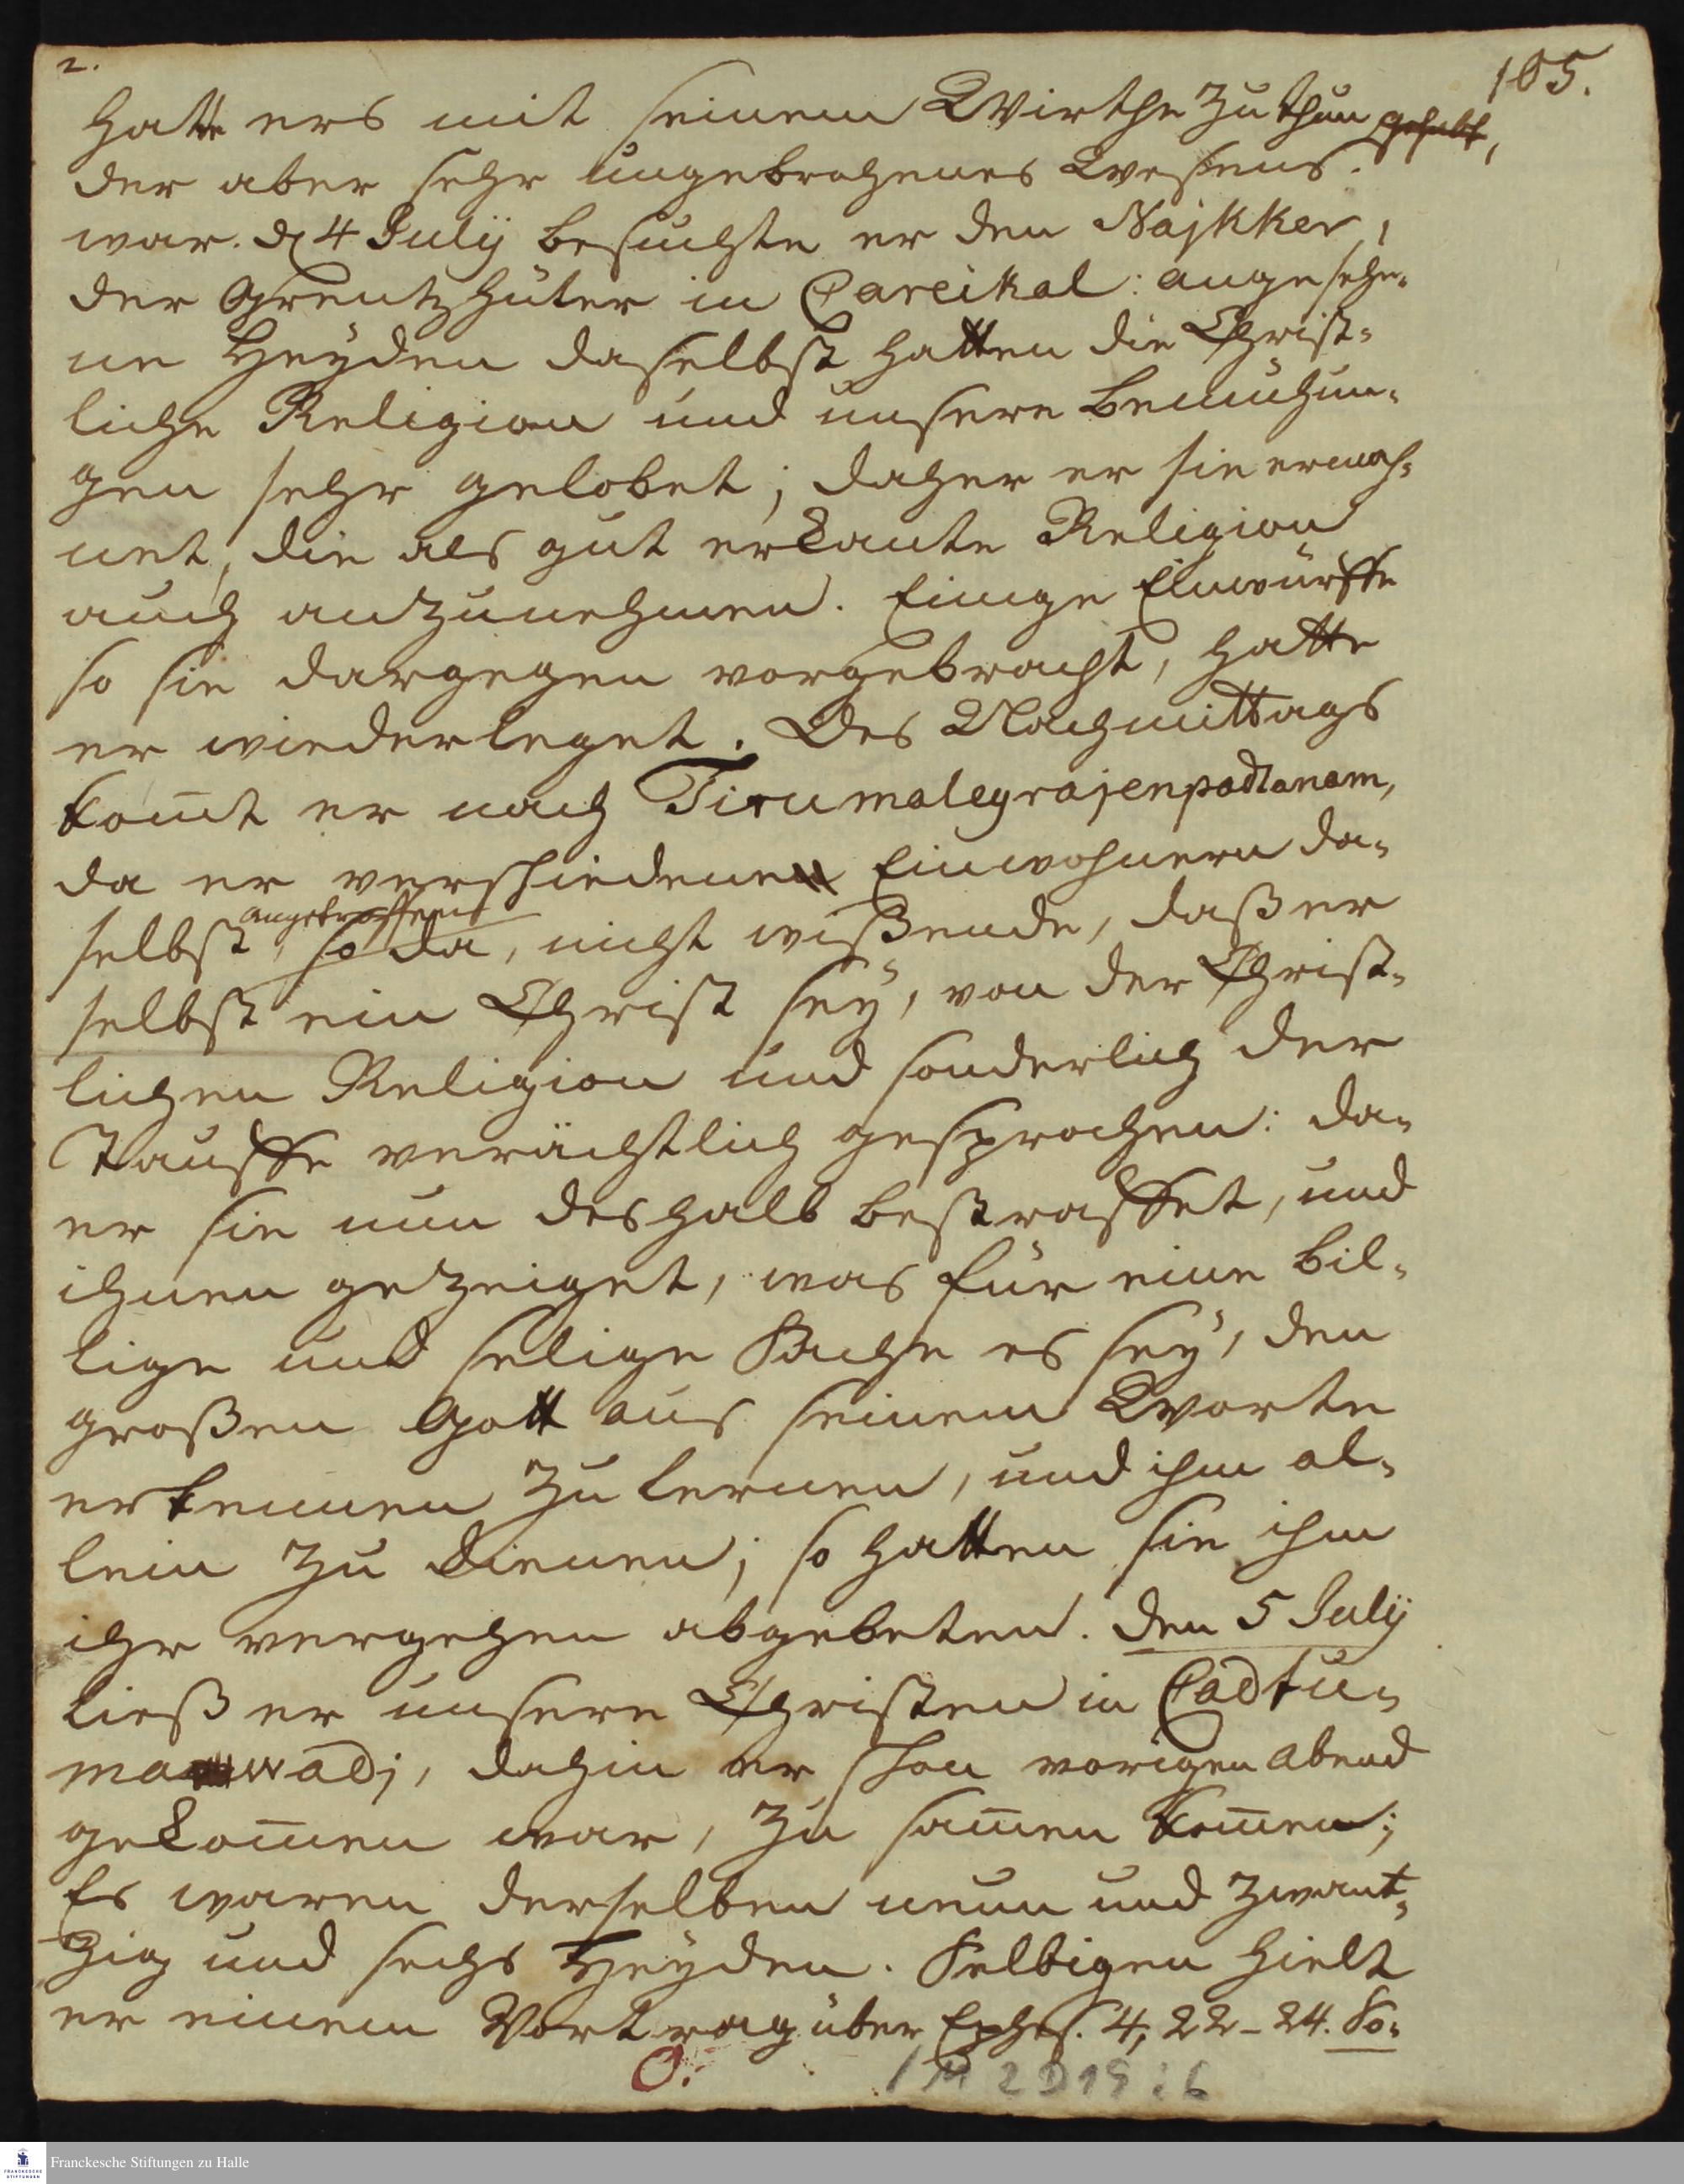 2.
105.
hatte ers mit seinem Wirthe zu thun gehabt,
der aber sehr ungebrochenes Wesens.
war. d 4 July besuchte er den Najkker,
der Grentzhüter in Careikal: angesehe-
ne Heyden daselbst hatten die Christ-
liche Religion und unsere Bemühun-
gen sehr gelobet; daher er sie ermah-
net, die als gut erkante Religion
auch anzunehmen. Einige Einwürffe
so sie dargegen vorgebracht, hatte
er wiederleget. Des Nachmittags
komt er nach Tirumalegrajenpadtanam,
da er verschiedenen Einwohnern da-
angetroffen
selbst, so da, nicht wißende, daß er
selbst ein Christ sey, von der Christ-
lichen Religion und sonderlich der
Tauffe verächtlich gesprochen: da-
er sie nun deshalb bestraffet, und
ihnen gezeiget, was für eine bil-
lige und selige Sache es sey, den
großen Gott aus seinem Worte
erkennen zu lernen, und ihm al-
lein zu dienen; so hatten sie ihm
ihr vergehen abgebeten. Den 5 July
ließ er unsere Christen in Cadtu-
mawadj, dahin er schon vorigen Abend
gekomen war, zu samen komen;
Es waren derselben neun und zwant-
zig und sechs Heyden. Selbigen hielt
er einen Vortrag über Ephes. 4, 22-24. So-
O.
1 M 2 D 19 : 6
Franckesche Stiftungen zu Halle
FRANCKESCHE STIFTUNGEN